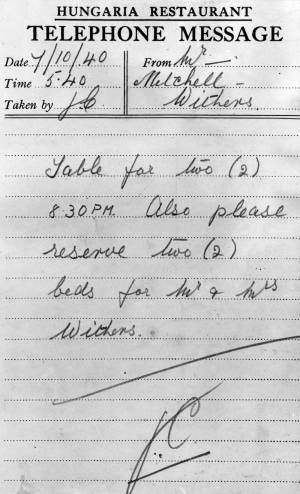 HUNGARIA RESTAURANT
TELEPHONE MESSAGE
Date 7/10/40 From Mr —
Time 5.40 Mitchell –
Taken by J.C Withers.
Table for two (2)
8.30 P.M. Also please
reserve two (2)
beds for Mr & Mrs
Withers.
J.C